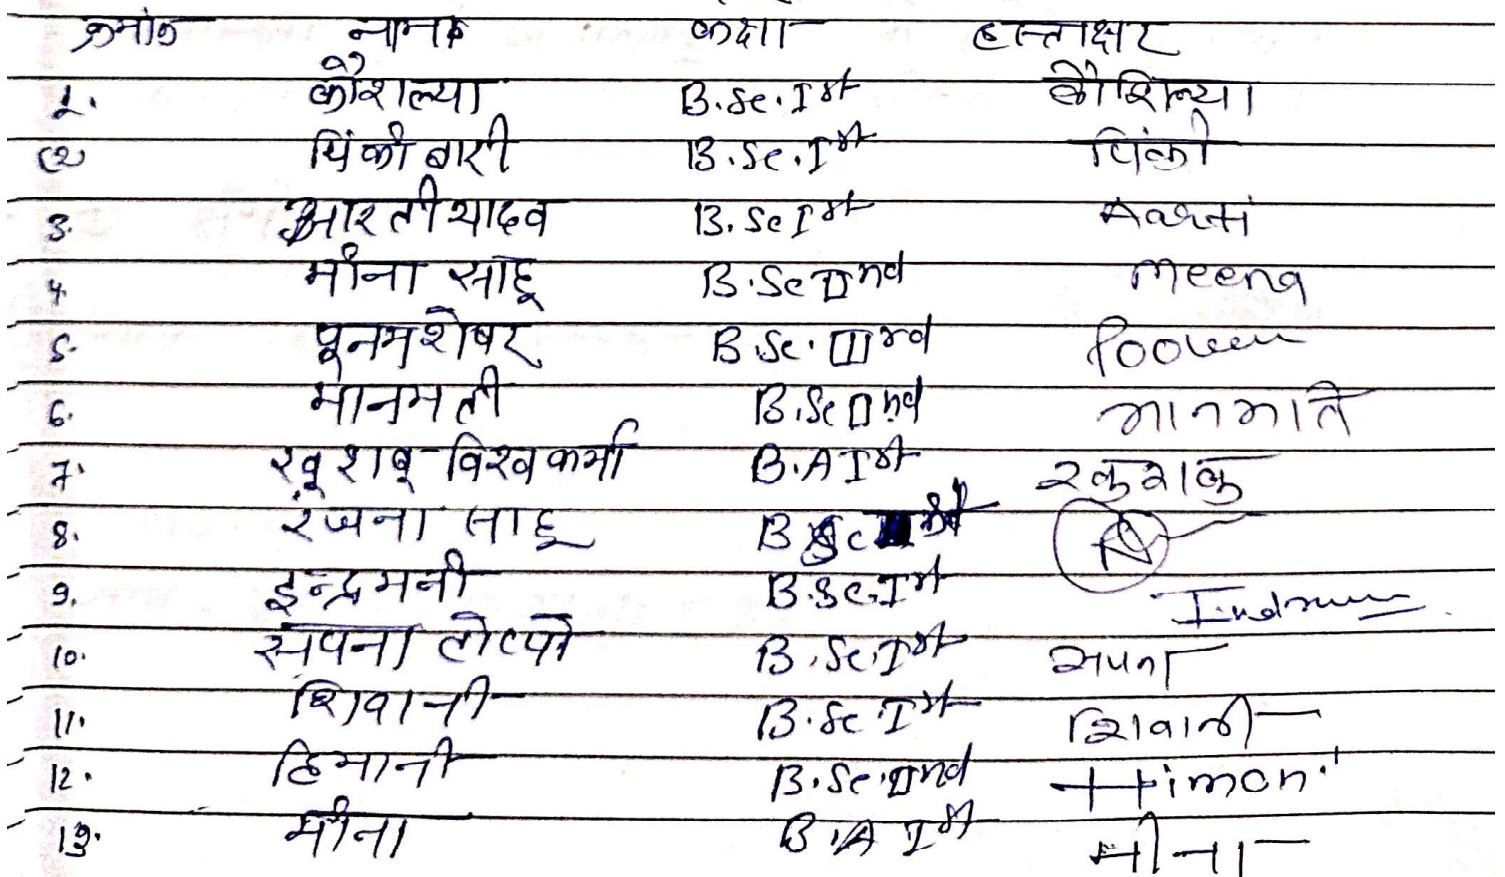 क्रमांक नाम कक्षा हस्ताक्षर
1. कौशल्या B.Sc. Ist कौशिल्या
2 पिंकी बारी B.Sc. Ist पिंकी
3. आरती यादव B.Sc Ist Aarti
4. मीना साहू B.Sc IInd Meena
5. पूनम शेषर B.Sc. IIIrd Poonam
6. मानमती B.Sc IInd मानमति
7. खूशबू विश्वकर्मा B.A Ist
8. रंजना साहू B.Sc
9. इन्द्रमनी B.Sc. Ist
10. सपना टोप्पो B.Sc. Ist सपना
11. शिवानी B.Sc Ist शिवानी
12. हिमानी B.Sc. IInd Himani
13. मीना B.A Ist मीना